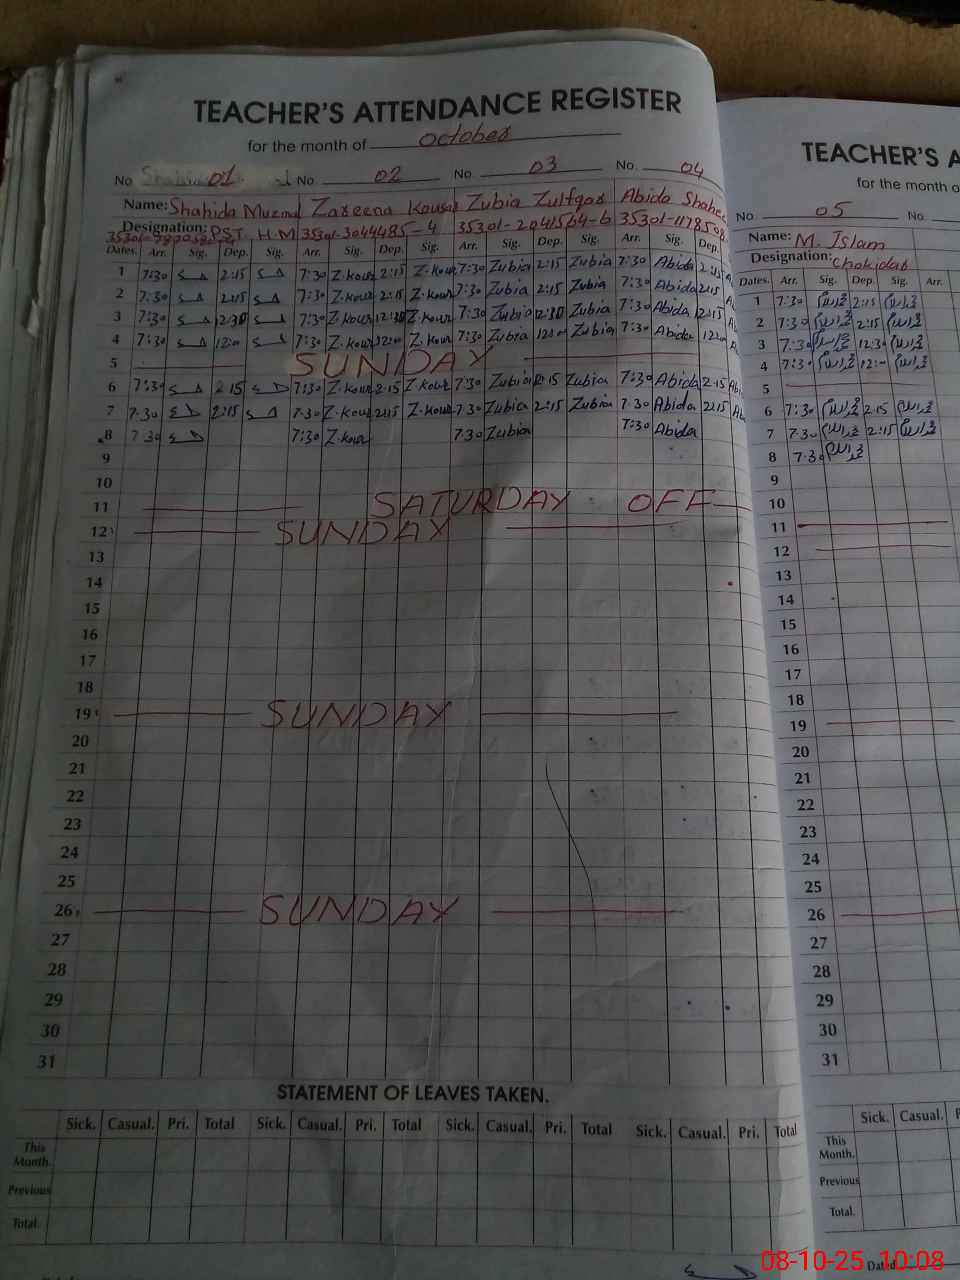 TEACHER'S ATTENDANCE REGISTER
for the month of October
No 01 No. 02 No. 03 No. 04
Name: Shahida Muzmal Zareena Kousar Zubia Zulfqar Abida Shahe
Designation: PST, H.M 35301-3044485-4 35301-2041564-6 35301-1178598
Dates. Arr. Sig. Dep. Sig. Arr. Sig. Dep. Sig. Arr. Sig. Dep. Sig. Arr. Sig. Dep.
1 7:30 2:15 7:30 Z.kour 2:15 Z.kour 7:30 Zubia 2:15 Zubia 7:30 Abida 2:15 A
2 7:30 2:15 7:30 Z.kour 2:15 Z.kour 7:30 Zubia 2:15 Zubia 7:30 Abida 2:15 A
3 7:30 12:30 7:30 Z.kour 12:30 Z.kour 7:30 Zubia 12:30 Zubia 7:30 Abida 12:15 A
4 7:30 12:00 7:30 Z.kour 12:00 Z.kour 7:30 Zubia 12:00 Zubia 7:30 Abida 12:00 A
5 SUNDAY
6 7:30 2:15 7:30 Z.kour 2:15 Z.kour 7:30 Zubia 2:15 Zubia 7:30 Abida 2:15 Ab
7 7:30 2:15 7:30 Z.kour 2:15 Z.kour 7:30 Zubia 2:15 Zubia 7:30 Abida 2:15 Ab
8 7:30 7:30 Z.kour 7:30 Zubia 7:30 Abida
9
10
11 SATURDAY OFF
12 SUNDAY
13
14
15
16
17
18
19 SUNDAY
20
21
22
23
24
25
26 SUNDAY
27
28
29
30
31
STATEMENT OF LEAVES TAKEN.
Sick. Casual. Pri. Total Sick. Casual. Pri. Total Sick. Casual. Pri. Total Sick. Casual. Pri. Total
This Month.
Previous
Total.
TEACHER'S A
for the month o
No. 05 No.
Name: M. Islam
Designation: Chokidar
Dates. Arr. Sig. Dep. Sig. Arr.
1 7:30 2:15
2 7:30 2:15
3 7:30 12:30
4 7:30 12:00
5
6 7:30 2:15
7 7:30 2:15
8 7:30
9
10
11
12
13
14
15
16
17
18
19
20
21
22
23
24
25
26
27
28
29
30
31
Sick. Casual. P
This Month.
Previous
Total.
Dated
08-10-25 10:08